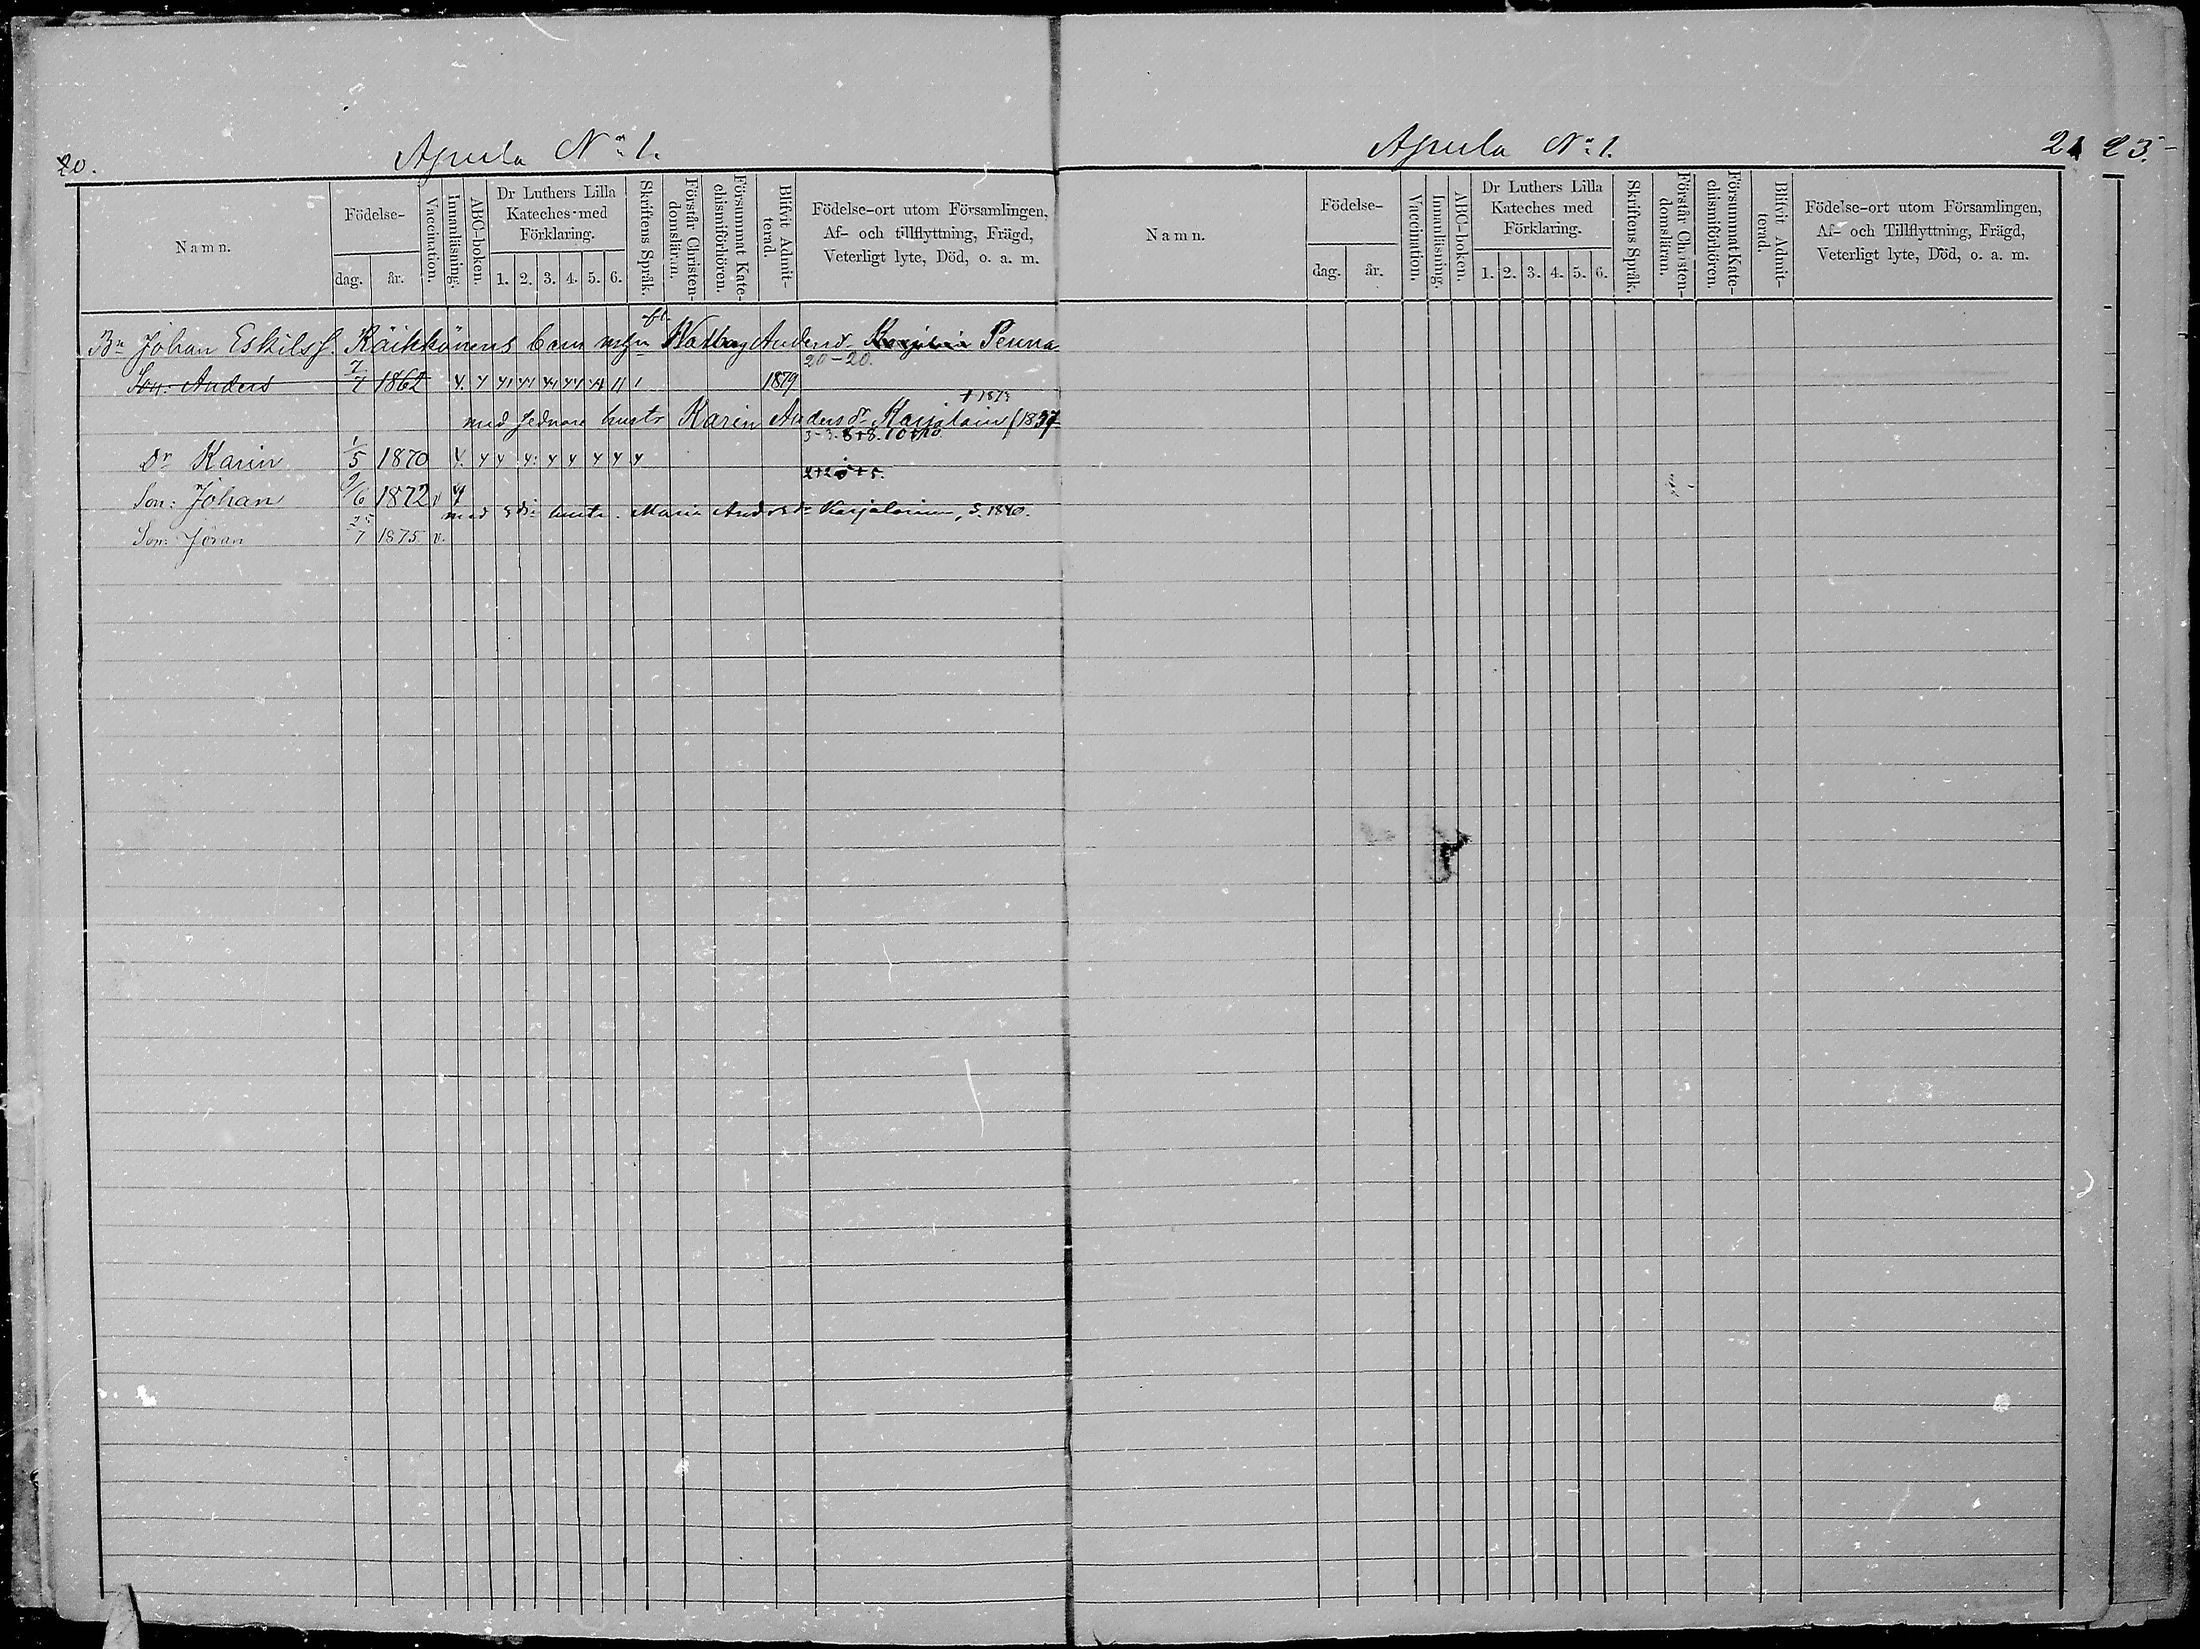 20.
Apula No 1.
Namn.
Födelse-
dag.
år.
Vaccination.
Innanläsning.
ABC-boken.
Dr Luthers Lilla
Kateches med
Förklaring.
1. 2. 3. 4. 5. 6.
Skriftens Språk.
Förstår Christen-
domsläran.
Försummat Kate-
chismiförhören.
Blifvit Admit-
terad.
Födelse-ort utom Församlingen,
Af- och tillflyttning, Frägd,
Veterligt lyte, Död, o. a. m.
Bn Johan Eskilss. Räikkönens barn Walborg Andersdr Penna
20-20.
Son: Anders 7/7 1862 1879
† 1873
med sednare hustr Karin Andersdr Karjalain f 1837
Dr Karin 1/5 1870
Son: Johan 9/6 1872 v
med 3die hustr. Maria Andersdr Karjalainen, f. 1840.
Son: Jöran 25/7 1875 v.
Apula No 1.
21
23.
Namn.
Födelse-
dag.
år.
Vaccination.
Innanläsning.
ABC-boken.
Dr Luthers Lilla
Kateches med
Förklaring.
1. 2. 3. 4. 5. 6.
Skriftens Språk.
Förstår Christen-
domsläran.
Försummat Kate-
chismiförhören.
Blifvit Admit-
terad.
Födelse-ort utom Församlingen,
Af- och Tillflyttning, Frägd,
Veterligt lyte, Död, o. a. m.